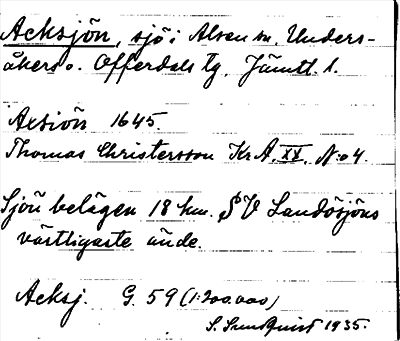 Acksjön, sjö i Alsen m. Unders-
åkers o. Offerdals tg, Jämtl. l.
Axsiön 1645.
Thomas Christersson Kr A. XX. N:o 4.
Sjön belägen 18 km. SV Landösjöns
västligaste ände.
Acksj. G. 59 (1:200.000)
S. Sundquist 1935.